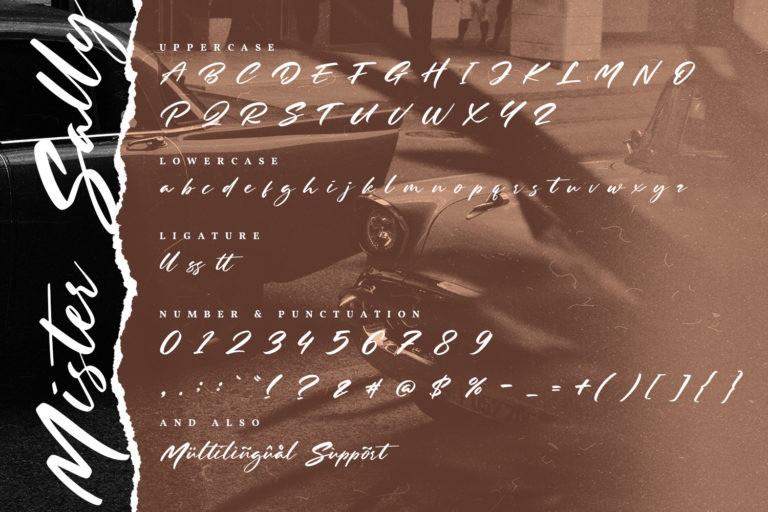 Mister Sally
UPPERCASE
A B C D E F G H I J K L M N O
P Q R S T U V W X Y Z
LOWERCASE
a b c d e f g h i j k l m n o p q r s t u v w x y z
LIGATURE
ll ss tt
NUMBER & PUNCTUATION
0 1 2 3 4 5 6 7 8 9
, . : ; ` " ! ? & # @ $ % - _ = + ( ) [ ] { }
AND ALSO
Mültilingûål Suppõrt